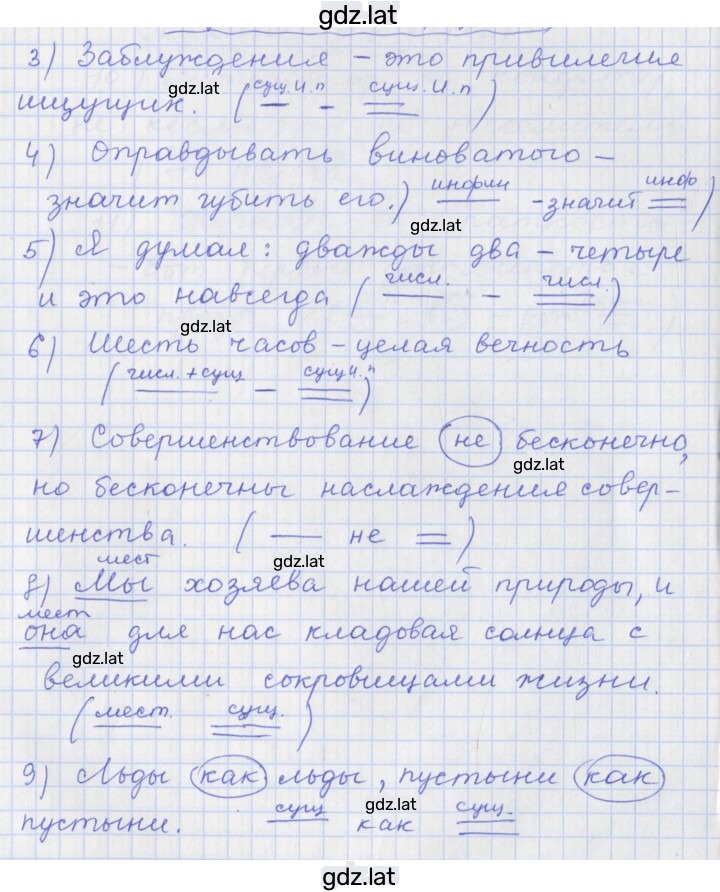 gdz.lat
3) Заблуждения – это привилегия
ищущих. ( сущ. И. п – сущ. И. п )
gdz.lat
4) Оправдывать виноватого –
значит губить его.) инфин - значит инф )
gdz.lat
5) Я думал: дважды два – четыре
и это навсегда ( числ. – числ. )
gdz.lat
6) Шесть часов – целая вечность
( числ. + сущ – сущ И. п )
7) Совершенствование не бесконечно,
gdz.lat
но бесконечны наслаждения совер-
шенства. ( не )
gdz.lat
мест
8) Мы хозяева нашей природы, и
мест
она для нас кладовая солнца с
gdz.lat
великими сокровищами жизни.
( мест. сущ. )
9) Льды как льды, пустыни как
пустыни. сущ как сущ.
gdz.lat
gdz.lat